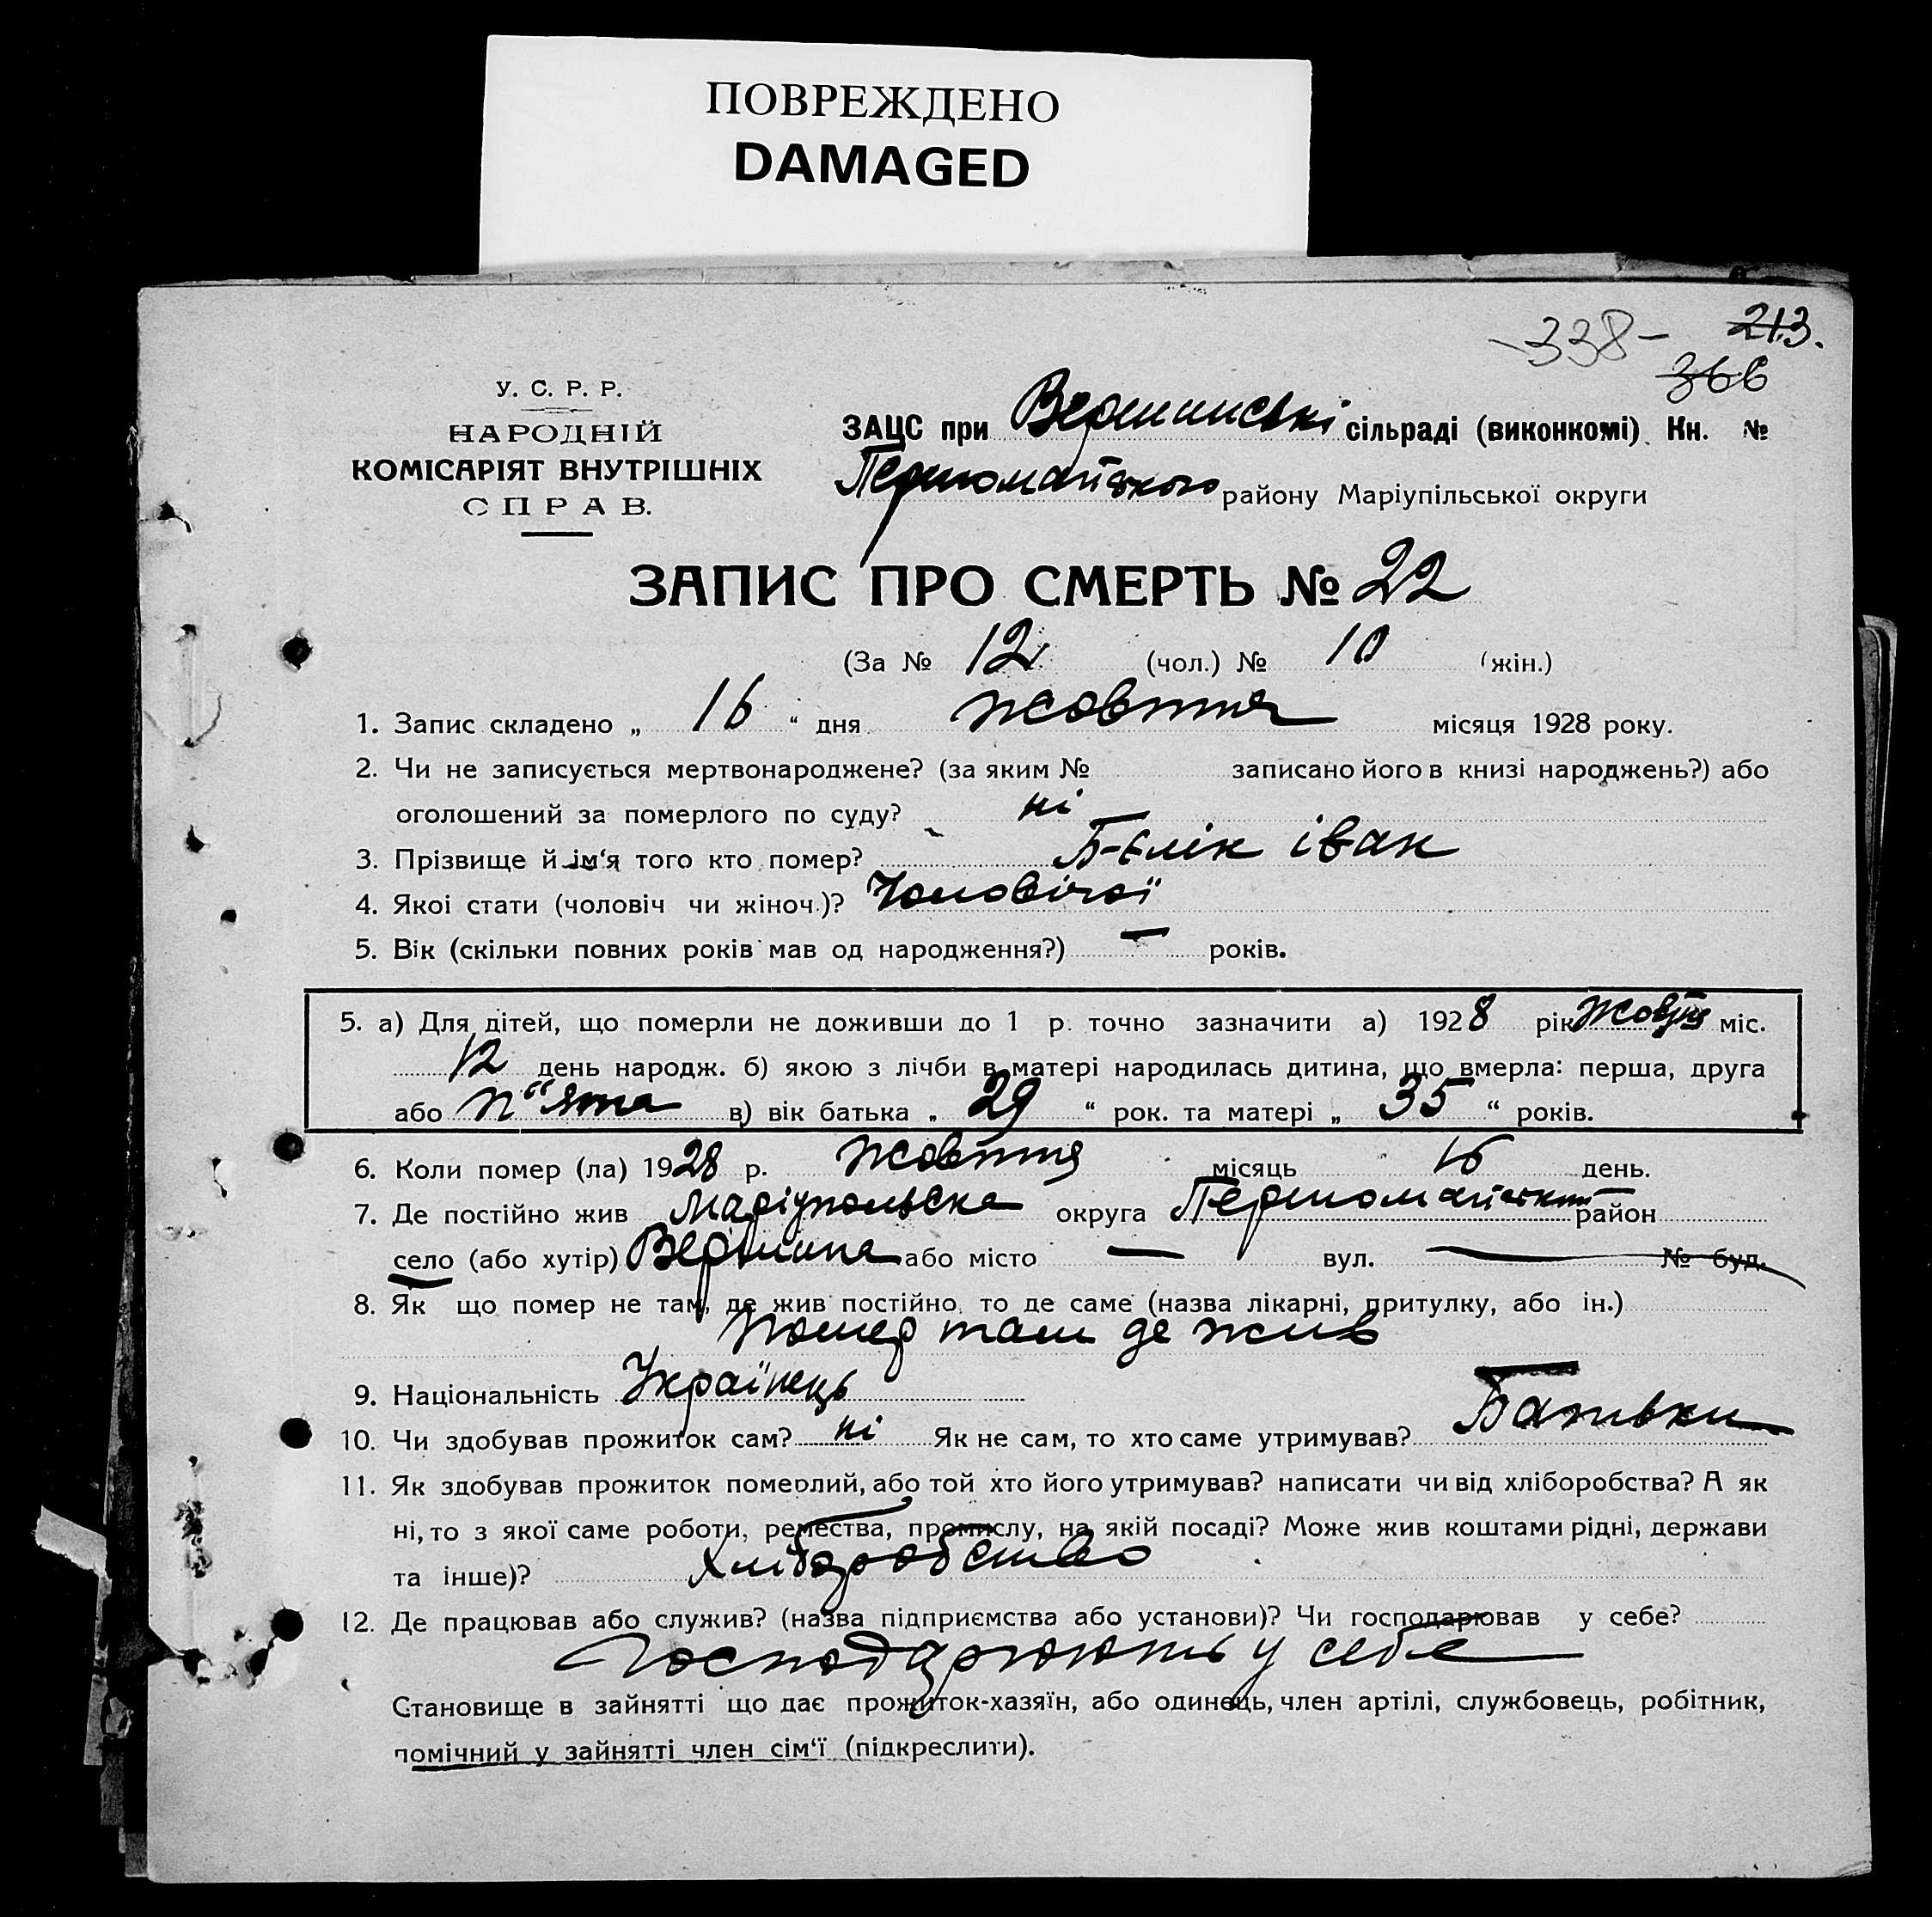 ПОВРЕЖДЕНО
DAMAGED
-338- 213.
366
У. С. Р. Р.
НАРОДНІЙ
КОМІСАРІЯТ ВНУТРІШНІХ
СПРАВ.
ЗАЦС при Вершинські сільраді (виконкомі) Кн. №
Першомайського району Маріупільської округи
ЗАПИС ПРО СМЕРТЬ № 22
(За № 12 (чол.) № 10 (жін.)
1. Запис складено „ 16 “ дня жовтня місяця 1928 року.
2. Чи не записується мертвонароджене? (за яким № записано його в книзі народжень?) або
оголошений за померлого по суду? ні
3. Прізвище й ім‘я того кто помер? Б-єлік іван
4. Якоі стати (чоловіч чи жіноч.)? Чоловічої
5. Вік (скільки повних років мав од народження?) — років.
5. а) Для дітей, що померли не доживши до 1 р. точно зазначити а) 1928 рік Жовтня міс.
12 день народж. б) якою з лічби в матері народилась дитина, що вмерла: перша, друга
або п“ята в) вік батька „ 29 “ рок. та матері „ 35 “ років.
6. Коли помер (ла) 1928 р. жовтня місяць 16 день.
7. Де постійно жив Маріупольска округа Першомайський район
село (або хутір) Вершина або місто — вул. — № буд.
8. Як що помер не там, де жив постійно, то де саме (назва лікарні, притулку, або ін.)
помер там де жив
9. Національність Українець
10. Чи здобував прожиток сам? ні Як не сам, то хто саме утримував? Батьки
11. Як здобував прожиток померлий, або той хто його утримував? написати чи від хліборобства? А як
ні, то з якої саме роботи, ремества, промислу, на якій посаді? Може жив коштами рідні, держави
та інше)? Хліборобство
12. Де працював або служив? (назва підприємства або установи)? Чи господарював у себе?
Господарюють у себе
Становище в зайнятті що дає прожиток-хазяїн, або одинець, член артілі, службовець, робітник,
помічний у зайнятті член сім‘ї (підкреслити).